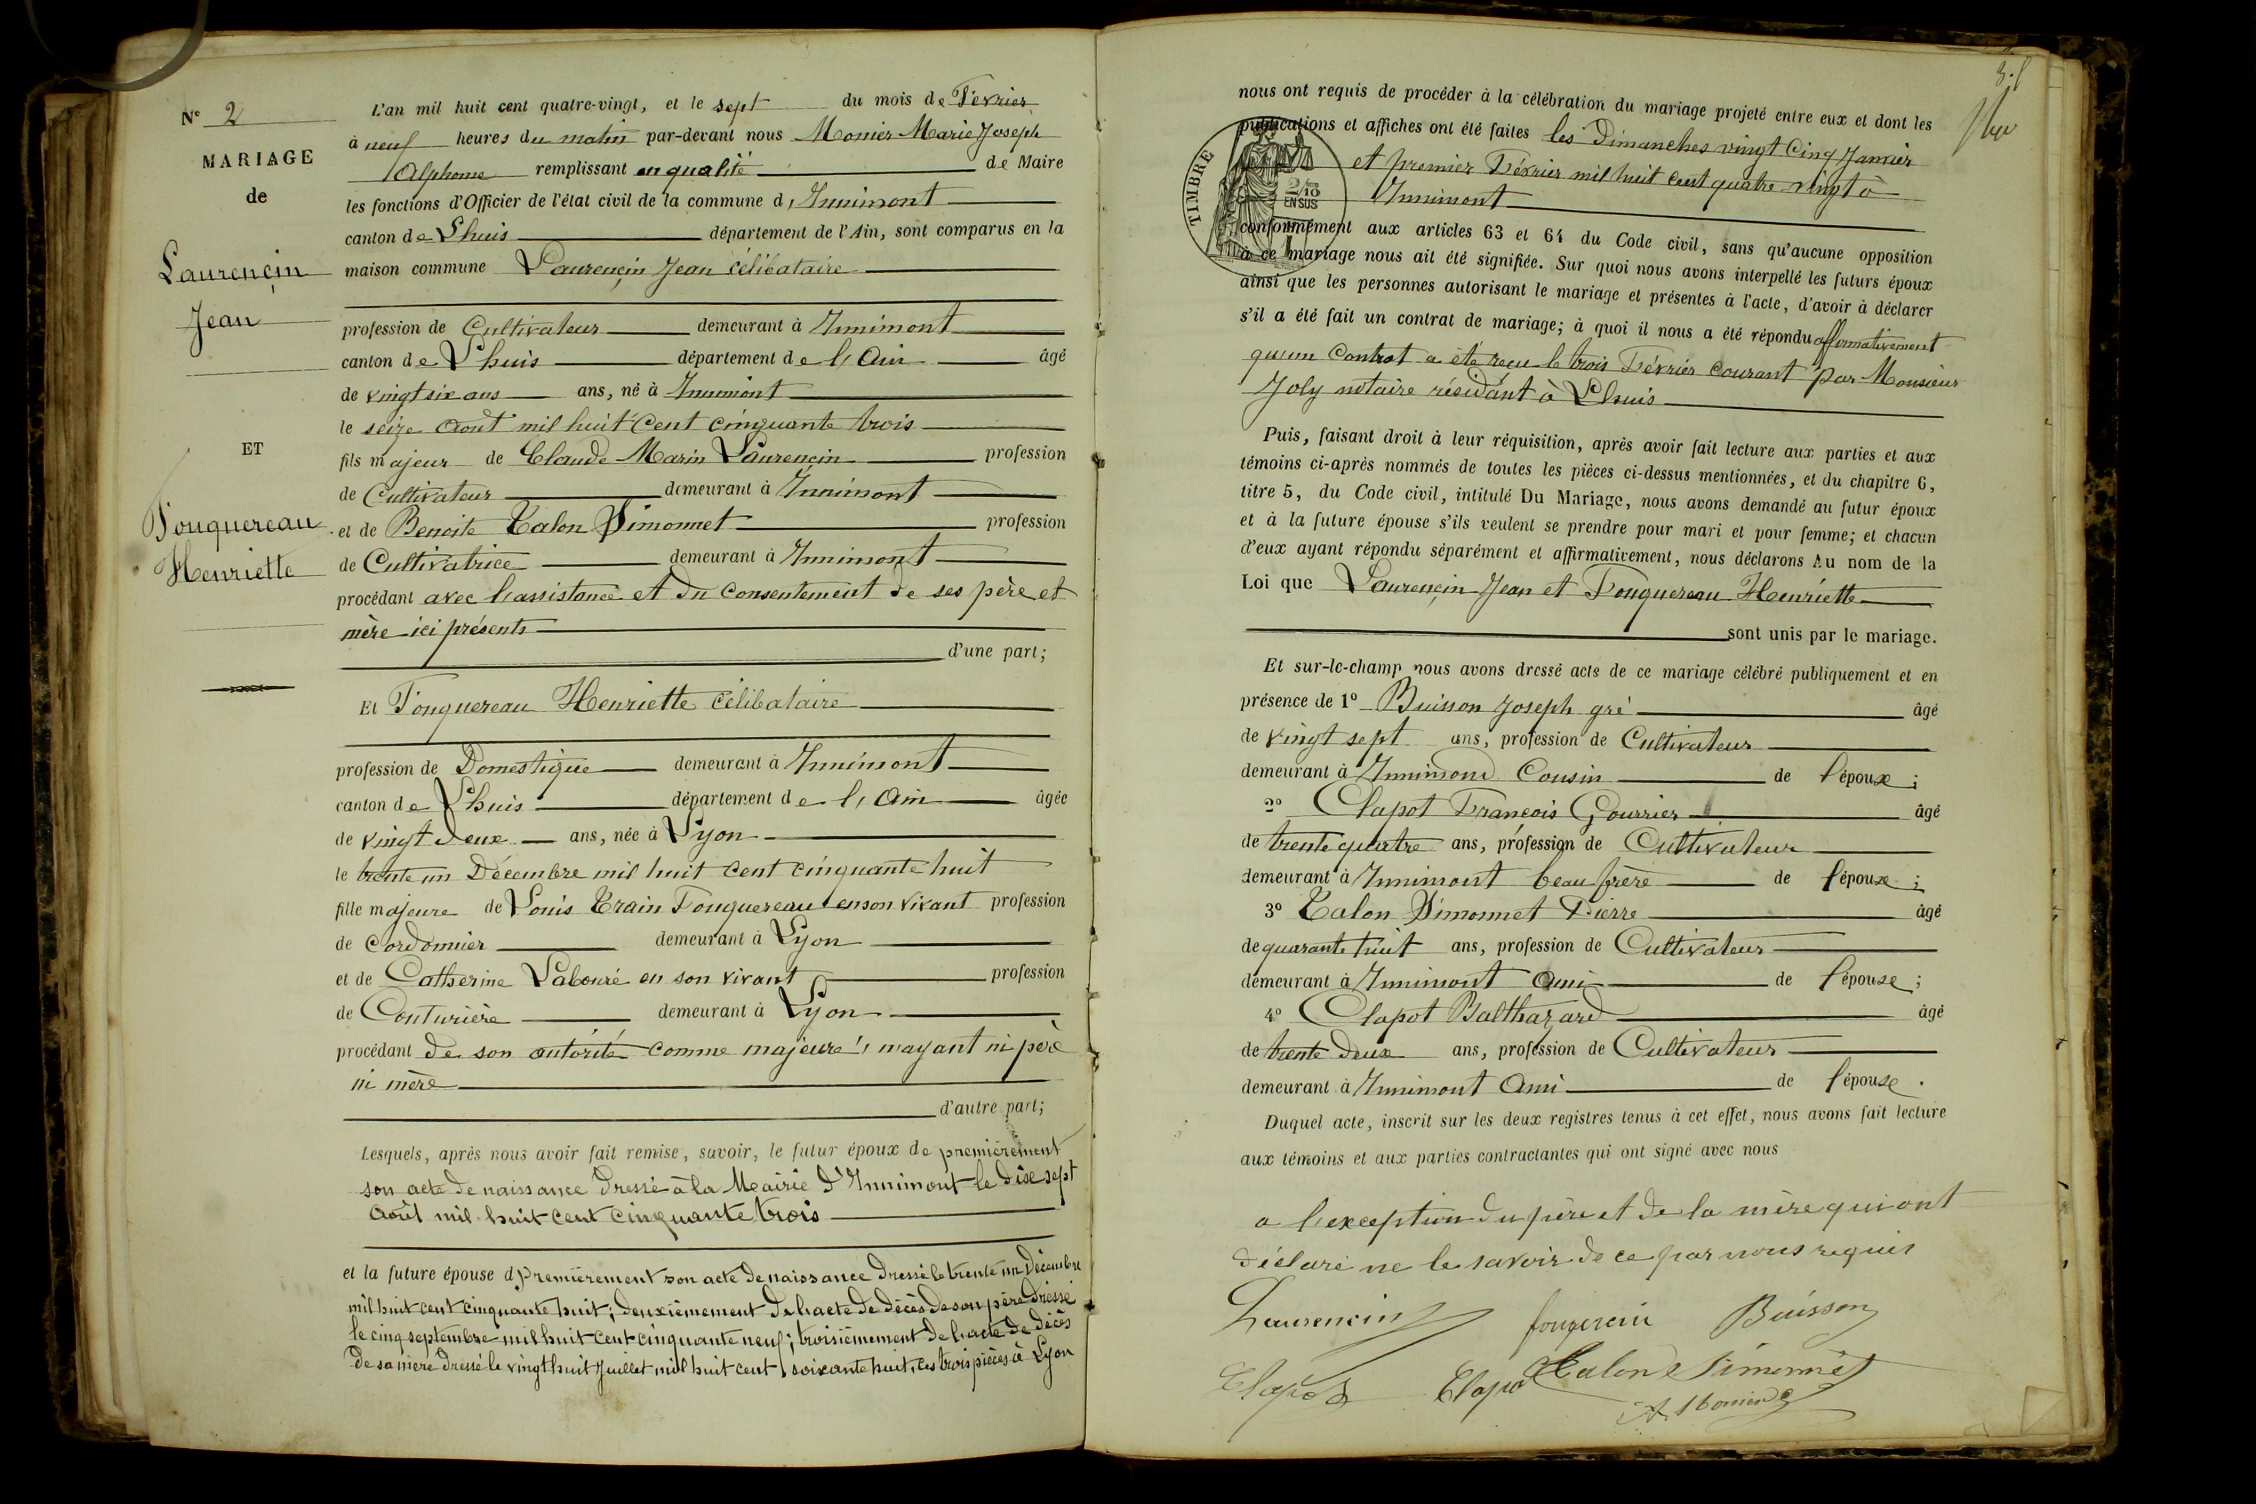 N° 2
MARIAGE
de
Laurençin
Jean
ET
Fouquereau
Henriette
L'an mil huit cent quatre-vingt, et le sept du mois de Février
à neuf heures du matin par-devant nous Monier Marie Joseph
Alphonse remplissant en qualité de Maire
les fonctions d'Officier de l'état civil de la commune d'Innimont
canton de Lhuis département de l'Ain, sont comparus en la
maison commune Laurençin Jean célibataire
profession de Cultivateur demeurant à Innimont
canton de Lhuis département de l'Ain âgé
de vingt six ans ans, né à Innimont
le seize Août mil huit cent cinquante trois
fils majeur de Claude Marin Laurençin profession
de Cultivateur demeurant à Innimont
et de Benoite Talon Simonnet profession
de Cultivatrice demeurant à Innimont
procédant avec l'assistance et du consentement de ses père et
mère ici présents
d'une part;
Et Fouquereau Henriette célibataire
profession de Domestique demeurant à Innimont
canton de Lhuis département de l'Ain âgée
de vingt deux ans, née à Lyon
le trente un Décembre mil huit cent cinquante huit
fille majeure de Louis Train Fouquereau en son vivant profession
de cordonnier demeurant à Lyon
et de Catherine Labouré en son vivant profession
de Couturière demeurant à Lyon
procédant de son autorité comme majeure n'ayant ni père
ni mère
d'autre part;
Lesquels, après nous avoir fait remise, savoir, le futur époux de premièrement
son acte de naissance dressé à la Mairie d'Innimont le dise sept
Août mil huit cent cinquante trois
et la future épouse d premièrement son acte de naissance dressé le trente un Décembre
mil huit cent cinquante huit; deuxièmement de l'acte de décès de son père dressé
le cinq septembre mil huit cent cinquante neuf; troisièmement de l'acte de décès
de sa mère dressé le vingt huit Juillet mil huit cent soixante huit, ces trois pièces à Lyon
nous ont requis de procéder à la célébration du mariage projeté entre eux et dont les
publications et affiches ont été faites les Dimanches vingt cinq Janvier
et premier Février mil huit cent quatre vingt à
Innimont
TIMBRE
2/10
EN SUS
conformément aux articles 63 et 64 du Code civil, sans qu'aucune opposition
à ce mariage nous ait été signifiée. Sur quoi nous avons interpellé les futurs époux
ainsi que les personnes autorisant le mariage et présentes à l'acte, d'avoir à déclarer
s'il a été fait un contrat de mariage; à quoi il nous a été répondu affirmativement
qu'un Contrat a été reçu le trois Février courant par Monsieur
Joly notaire résidant à Lhuis
Puis, faisant droit à leur réquisition, après avoir fait lecture aux parties et aux
témoins ci-après nommés de toutes les pièces ci-dessus mentionnées, et du chapitre 6,
titre 5, du Code civil, intitulé Du Mariage, nous avons demandé au futur époux
et à la future épouse s'ils veulent se prendre pour mari et pour femme; et chacun
d'eux ayant répondu séparément et affirmativement, nous déclarons Au nom de la
Loi que Laurençin Jean et Fouquereau Henriette
sont unis par le mariage.
Et sur-le-champ nous avons dressé acte de ce mariage célébré publiquement et en
présence de 1° Buisson Joseph gré âgé
de vingt sept ans, profession de Cultivateur
demeurant à Innimond Cousin de l'époux;
2° Clapot François Gourrier âgé
de trente quatre ans, profession de Cultivateur
demeurant à Innimont beau frère de l'époux;
3° Talon Simonnet Pierre âgé
de quarante huit ans, profession de Cultivateur
demeurant à Innimont Ami de l'épouse;
4° Clapot Balthazard âgé
de trente deux ans, profession de Cultivateur
demeurant à Innimont Ami de l'épouse.
Duquel acte, inscrit sur les deux registres tenus à cet effet, nous avons fait lecture
aux témoins et aux parties contractantes qui ont signé avec nous
a l'exception du père et de la mère qui ont
déclaré ne le savoir de ce par nous requis
Laurencin fouqereau Buisson
Clapot Clapo Talon Simonnet
A. Monier